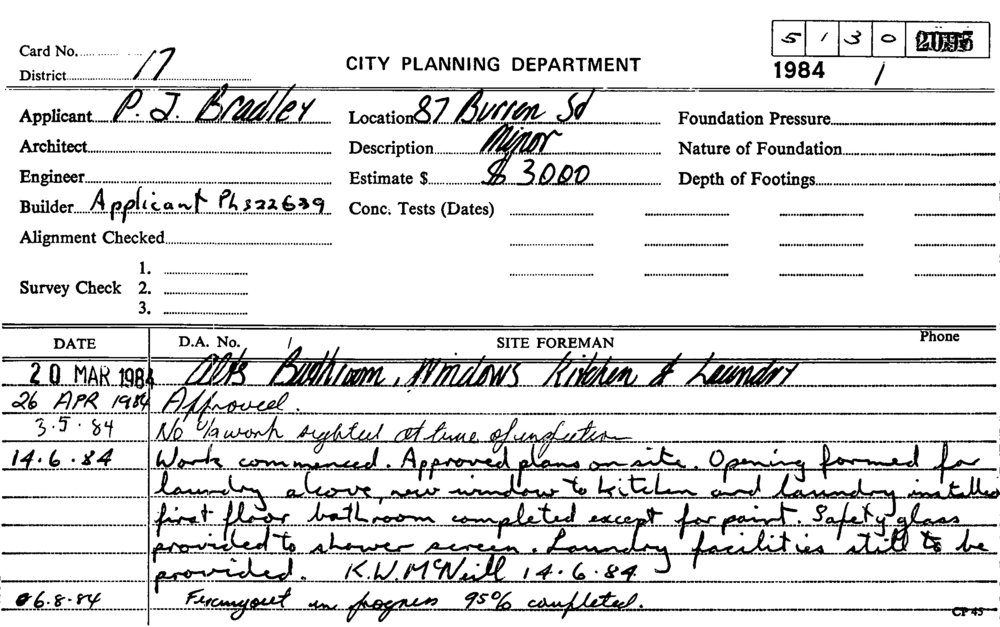 Card No. 17
District
CITY PLANNING DEPARTMENT
5 1 3 0
1984 /
Applicant P. J. Bradley
Location 87 Burren Sd
Foundation Pressure
Architect
Description Minor
Nature of Foundation
Engineer
Estimate $ $ 3000
Depth of Footings
Builder Applicant Ph 522639
Conc. Tests (Dates)
Alignment Checked
1.
Survey Check 2.
3.
DATE
D.A. No. /
SITE FOREMAN
Phone
20 MAR 1984 Alts Bathroom, Windows Kitchen & Laundry
26 APR 1984 Approved.
3.5.84 No work sighted at time of inspection
14.6.84 Work commenced. Approved plans on site. Opening formed for
laundry alcove, new window to kitchen and laundry installed
first floor bathroom completed except for paint. Safety glass
provided to shower screen. Laundry facilities still to be
provided. K.W. McNeill 14.6.84
06.8.84 in progress 95% completed.
CP 45